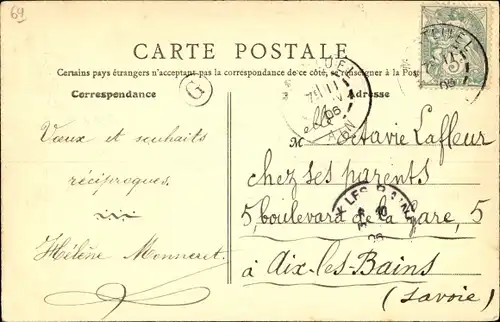 64
CARTE POSTALE
Certains pays étrangers n'acceptant pas la correspondance de ce côté, se renseigner à la Poste
Correspondance
G
Adresse
Vœux et souhaits
réciproques.
Hélène Monneret
Melle Octavie Lafleur
chez ses parents
5, boulevard de la Gare, 5
à Aix-les-Bains
(Savoie)
LES BAINS